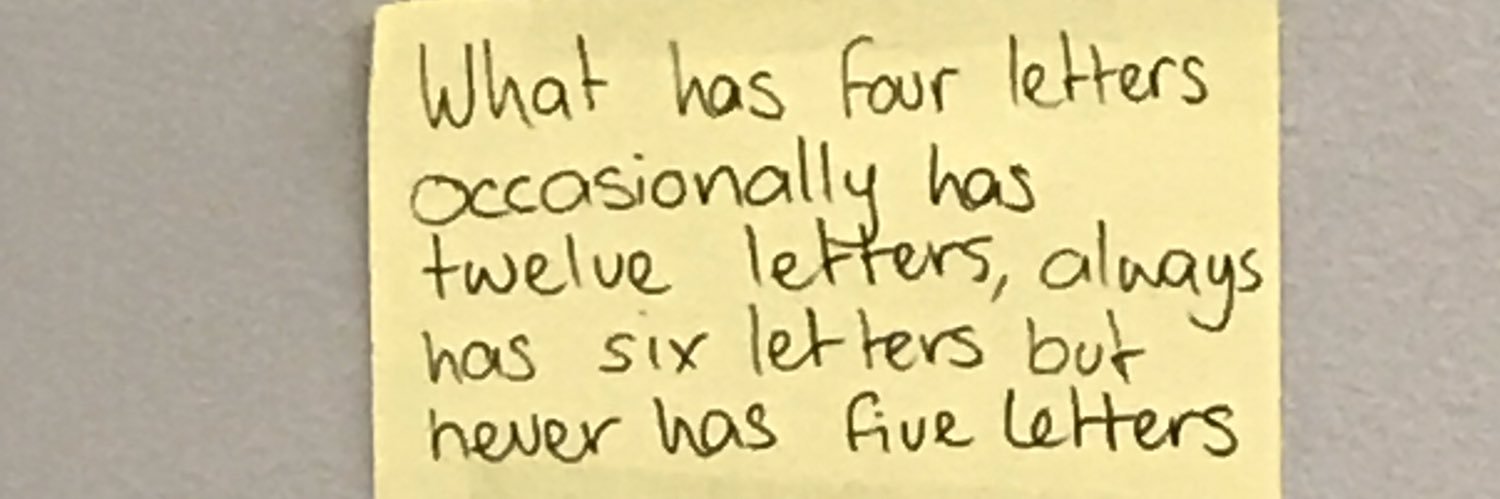 What has four letters
occasionally has
twelve letters, always
has six letters but
never has five letters